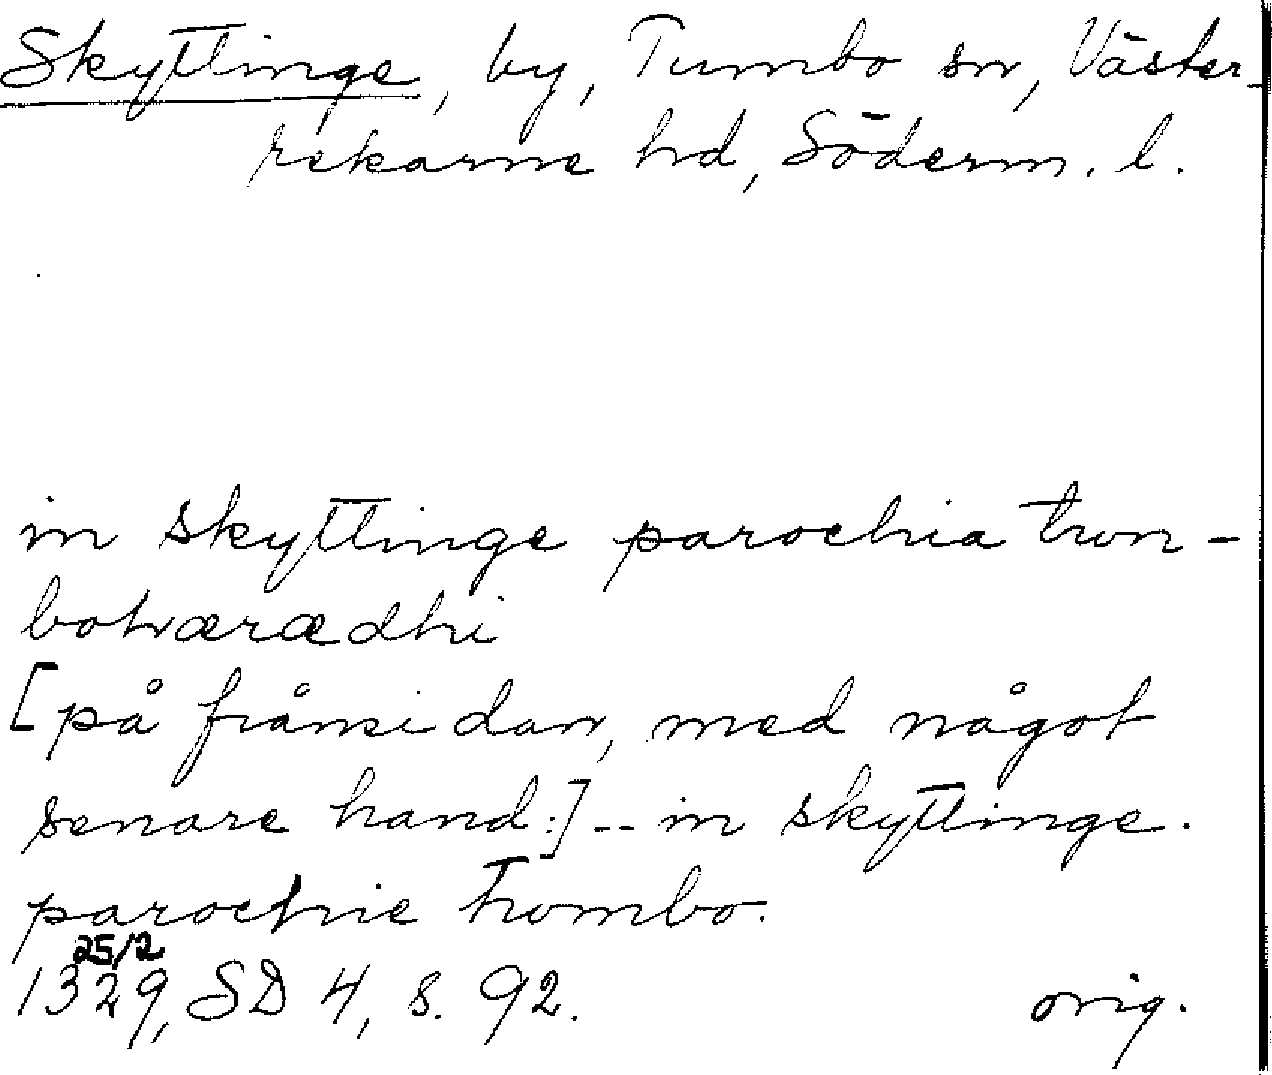 Skyttinge, by, Tumbo sn, Väster-
rekarne hd, Söderm. l.
in skyttinge parochia tvon-
botværædhi
[på frånsidan, med något
senare hand:] -- in skyttinge.
parochie tvombo.
25/2
1329, SD 4, s. 92. orig.